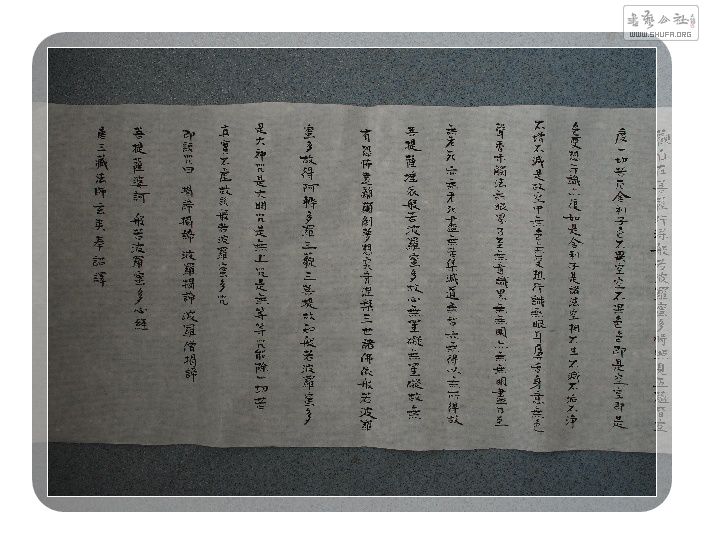 觀自在菩薩行深般若波羅蜜多時照見五蘊皆空
度一切苦厄舍利子色不異空空不異色色即是空空即是
色受想行識亦復如是舍利子是諸法空相不生不滅不垢不淨
不增不減是故空中無色無受想行識無眼耳鼻舌身意無色
聲香味觸法無眼界乃至無意識界無無明亦無無明盡乃至
無老死亦無老死盡無苦集滅道無智亦無得以無所得故
菩提薩埵依般若波羅蜜多故心無罣礙無罣礙故無
有恐怖遠離顛倒夢想究竟涅槃三世諸佛依般若波羅
蜜多故得阿耨多羅三藐三菩提故知般若波羅蜜多
是大神咒是大明咒是無上咒是無等等咒能除一切苦
真實不虛故說般若波羅蜜多咒
即說咒曰 揭諦揭諦 波羅揭諦 波羅僧揭諦
菩提薩婆訶 般若波羅蜜多心經
唐三藏法師玄奘奉詔譯
書藝公社
WWW.SHUFA.ORG